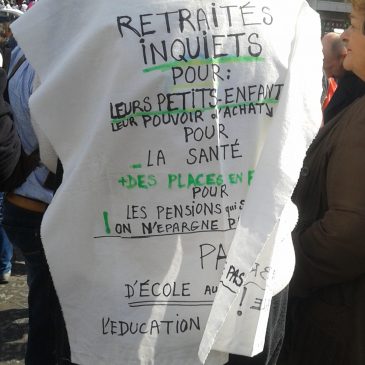 RETRAITÉS
INQUIETS
POUR:
LEURS PETITS-ENFANT
LEUR POUVOIR D'ACHAT
POUR
LA SANTÉ
+DES PLACES EN
POUR
LES PENSIONS qui
! ON N'ÉPARGNE
PAS
D'ÉCOLE AU
L'EDUCATION